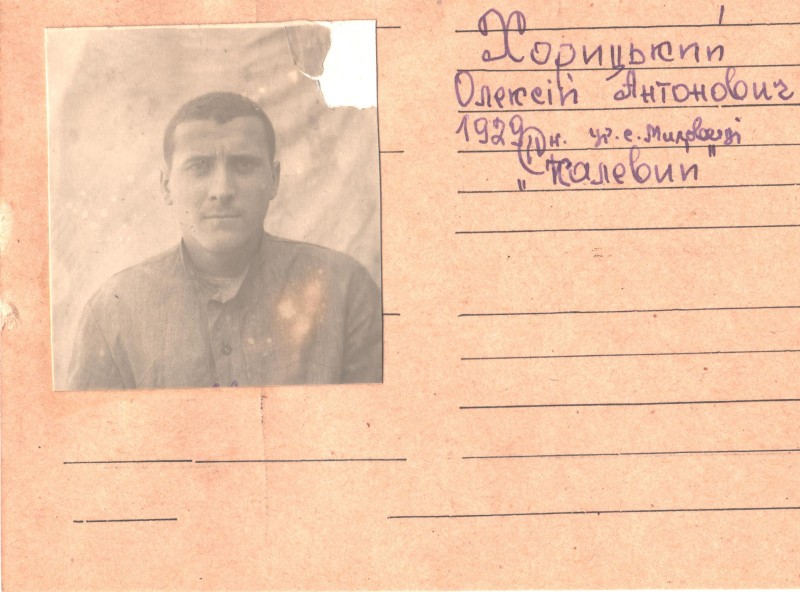 Хорицький
Олексій Антонович
1929 р.н. ур. с.
"Скалевий"